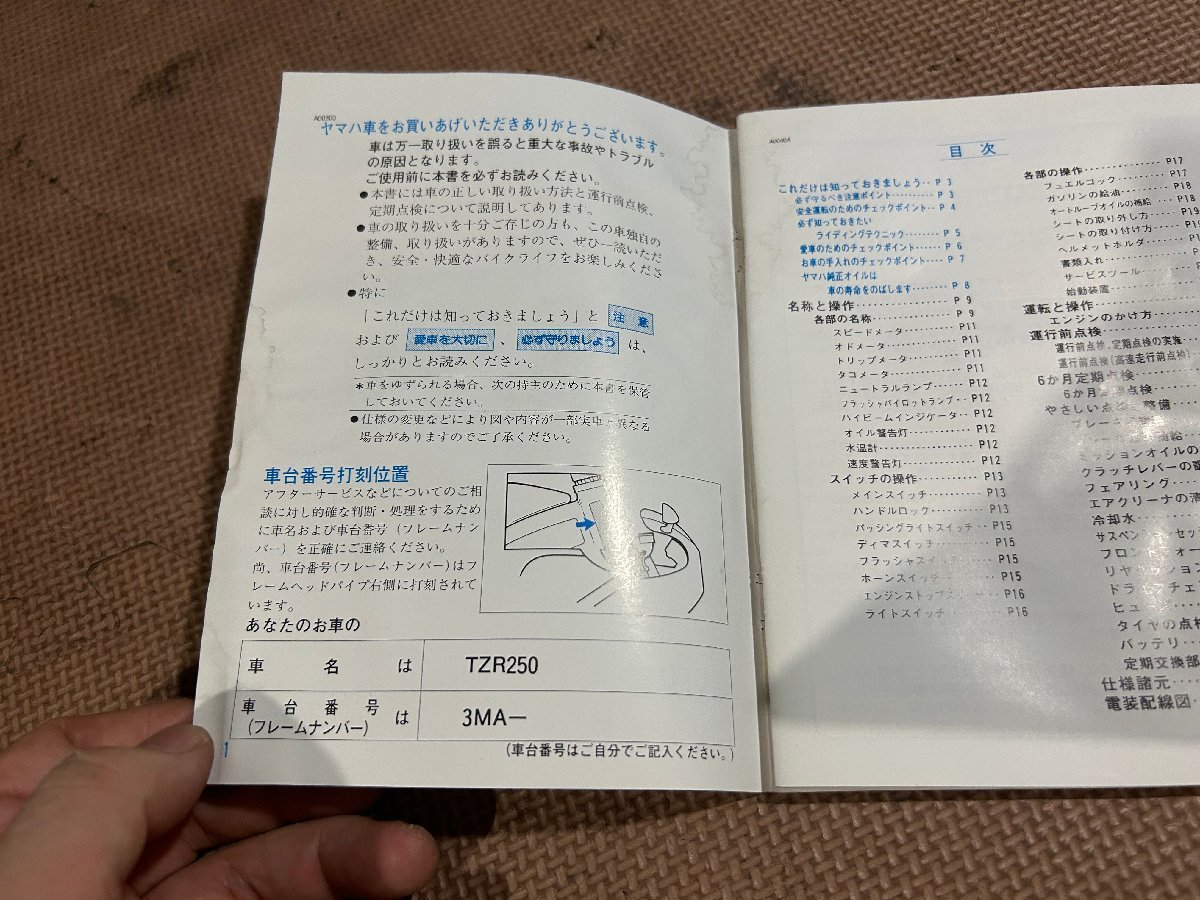 ヤマハ車をお買いあげいただきありがとうございます。
車は万一取り扱いを誤ると重大な事故やトラブル
の原因となります。
ご使用前に本書を必ずお読みください。
●本書には車の正しい取り扱い方法と運行前点検、
定期点検について説明してあります。
●車の取り扱いを十分ご存じの方も、この車独自の
整備、取り扱いがありますので、ぜひ一読いただ
き、安全・快適なバイクライフをお楽しみくださ
い。
●特に
「これだけは知っておきましょう」と 注意
および 愛車を大切に 、 必ず守りましょう は、
しっかりとお読みください。
＊車をゆずられる場合、次の持主のために本書を保管
しておいてください。
●仕様の変更などにより図や内容が一部実車と異なる
場合がありますのでご了承ください。
車台番号打刻位置
アフターサービスなどについてのご相
談に対し的確な判断・処理をするため
に車名および車台番号（フレームナン
バー）を正確にご連絡ください。
尚、車台番号(フレームナンバー)はフ
レームヘッドパイプ右側に打刻されて
います。
あなたのお車の
車名は TZR250
車台番号は 3MA―
(フレームナンバー)
(車台番号はご自分でご記入ください。)
1
目次
これだけは知っておきましょう‥P 3
必ず守るべき注意ポイント‥‥‥P 3
安全運転のためのチェックポイント‥P 4
必ず知っておきたい
ライディングテクニック‥‥P 5
愛車のためのチェックポイント‥‥P 6
お車の手入れのチェックポイント‥‥P 7
ヤマハ純正オイルは
車の寿命をのばします‥‥‥P 8
名称と操作‥‥‥‥‥‥P 9
各部の名称‥‥‥‥‥‥P 9
スピードメータ‥‥‥‥P11
オドメータ‥‥‥‥‥‥P11
トリップメータ‥‥‥‥P11
タコメータ‥‥‥‥‥‥P11
ニュートラルランプ‥‥‥P12
フラッシャパイロットランプ‥P12
ハイビームインジケータ‥P12
オイル警告灯‥‥‥‥‥P12
水温計‥‥‥‥‥‥‥‥P12
速度警告灯‥‥‥‥‥‥P12
スイッチの操作‥‥‥‥‥P13
メインスイッチ‥‥‥‥P13
ハンドルロック‥‥‥‥P13
パッシングライトスイッチ‥P15
ディマスイッチ‥‥‥‥P15
フラッシャスイッチ‥‥P15
ホーンスイッチ‥‥‥‥P15
エンジンストップスイッチ‥P16
ライトスイッチ‥‥‥‥P16
各部の操作‥‥‥‥‥‥P17
フュエルコック‥‥‥‥P17
ガソリンの給油‥‥‥‥P18
オートルーブオイルの補給‥‥P18
シートの取り外し方‥‥
シートの取り付け方‥‥
ヘルメットホルダ‥‥‥
書類入れ‥‥‥‥‥‥
サービスツール‥‥‥‥
始動装置‥‥‥‥‥‥
運転と操作‥‥‥‥‥‥
エンジンのかけ方‥‥‥
運行前点検‥‥‥‥‥‥
運行前点検、定期点検の実施‥‥
運行前点検(高速走行前点検)
6か月定期点検‥‥‥‥
6か月定期点検‥‥‥‥
やさしい点検と整備‥‥
ミッションオイルの
クラッチレバーの
フェアリング‥‥‥
エアクリーナの
冷却水‥‥‥‥
タイヤの点検
バッテリ‥‥‥
定期交換部
仕様諸元‥‥‥
電装配線図‥‥